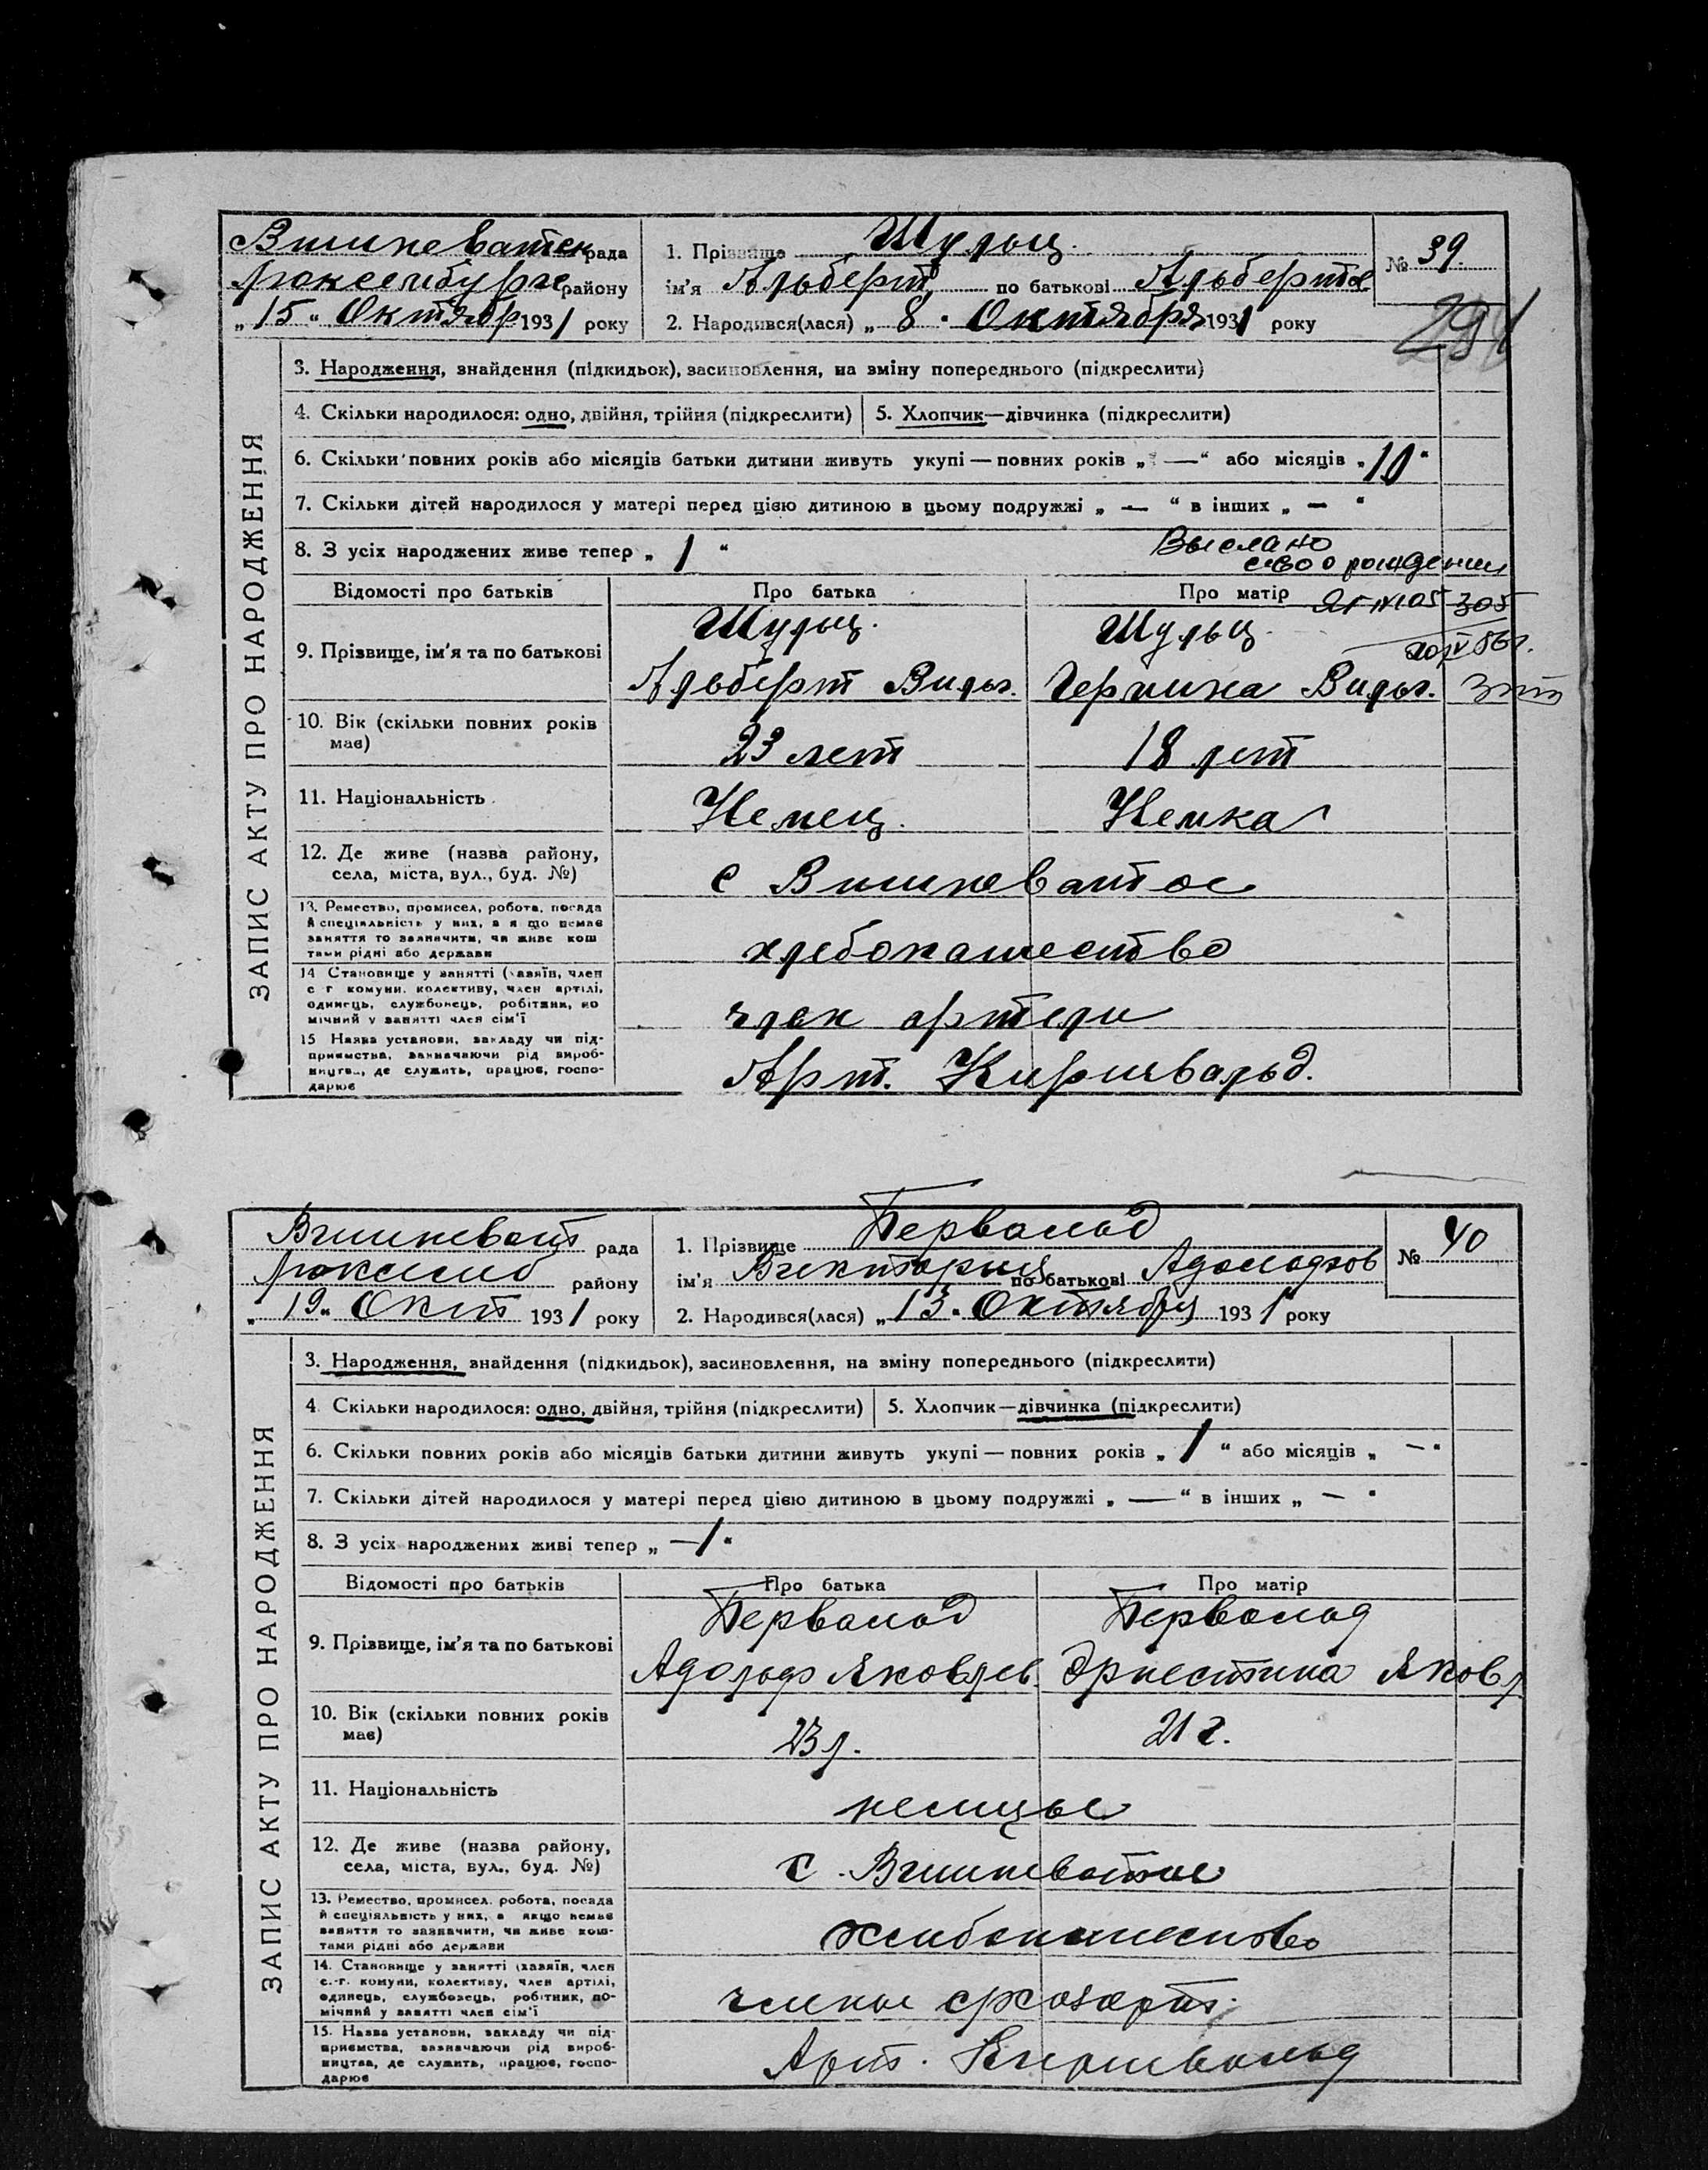 Вишневатск рада
Люксембургс району
„15“ Октябр 1931 року
1. Прізвище Шульц.
ім'я Альберт по батькові Альберто
2. Народився(лася) „8“ Октября 1931 року
№ 39.
ЗАПИС АКТУ ПРО НАРОДЖЕННЯ
3. Народження, знайдення (підкидьок), засиновлення, на зміну попереднього (підкреслити)
4. Скільки народилося: одно, двійня, трійня (підкреслити)
5. Хлопчик—дівчинка (підкреслити)
6. Скільки повних років або місяців батьки дитини живуть укупі — повних років „—“ або місяців „10“
7. Скільки дітей народилося у матері перед цією дитиною в цьому подружжі „—“ в інших „—“
8. З усіх народжених живе тепер „1“
Выслано
св-во о рождении
Відомості про батьків Про батька Про матір
9. Прізвище, ім'я та по батькові
Шульц. Шульц.
Альберт Вильг. Гермина Вильг.
10. Вік (скільки повних років
має)
23 лет 18 лет
11. Національність
Немец. Немка
12. Де живе (назва району,
села, міста, вул., буд. №)
с Вишневатое
13. Ремество, промисел, робота, посада
й спеціяльність у них, а я що немає
заняття то зазначити, чи живе кош
тами рідні або держави
хлебопашество
14 Становище у занятті (хазяїн, член
с г комуни, колективу, член артілі,
одинець, службовець, робітник, по
мічний у занятті член сім'ї
член артели
15 Назва установи, закладу чи під-
приємства, зазначаючи рід вироб-
ництва, де служить, працює, госпо-
дарює
Арт. Киршвальд.
Вишневат рада
Люксемб району
„19“ Окт 1931 року
1. Прізвище Бервальд
ім'я Виктория по батькові Адольфов
2. Народився(лася) „13“ Октября 1931 року
№ 40
ЗАПИС АКТУ ПРО НАРОДЖЕННЯ
3. Народження, знайдення (підкидьок), засиновлення, на зміну попереднього (підкреслити)
4. Скільки народилося: одно, двійня, трійня (підкреслити)
5. Хлопчик—дівчинка (підкреслити)
6. Скільки повних років або місяців батьки дитини живуть укупі — повних років „1“ або місяців „—“
7. Скільки дітей народилося у матері перед цією дитиною в цьому подружжі „—“ в інших „—“
8. З усіх народжених живі тепер „—1“
Відомості про батьків Про батька Про матір
9. Прізвище, ім'я та по батькові
Бервальд Бервальд
Адольф Яковлев. Эрнестина Яковл
10. Вік (скільки повних років
має)
23 л. 21 г.
11. Національність
немцы
12. Де живе (назва району,
села, міста, вул., буд. №)
с. Вишневатое
13. Ремество, промисел, робота, посада
й спеціяльність у них, а якщо немає
заняття то зазначити, чи живе кош-
тами рідні або держави
хлибопашество
14. Становище у занятті (хазяїн, член
с.-г. комуни, колективу, член артілі,
одинець, службовець, робітник, по-
мічний у занятті член сім'ї
члены сельхозарт.
15. Назва установи, закладу чи під-
приємства, зазначаючи рід вироб-
ництва, де служить, працює, госпо-
дарює
Арт. Киршвальд